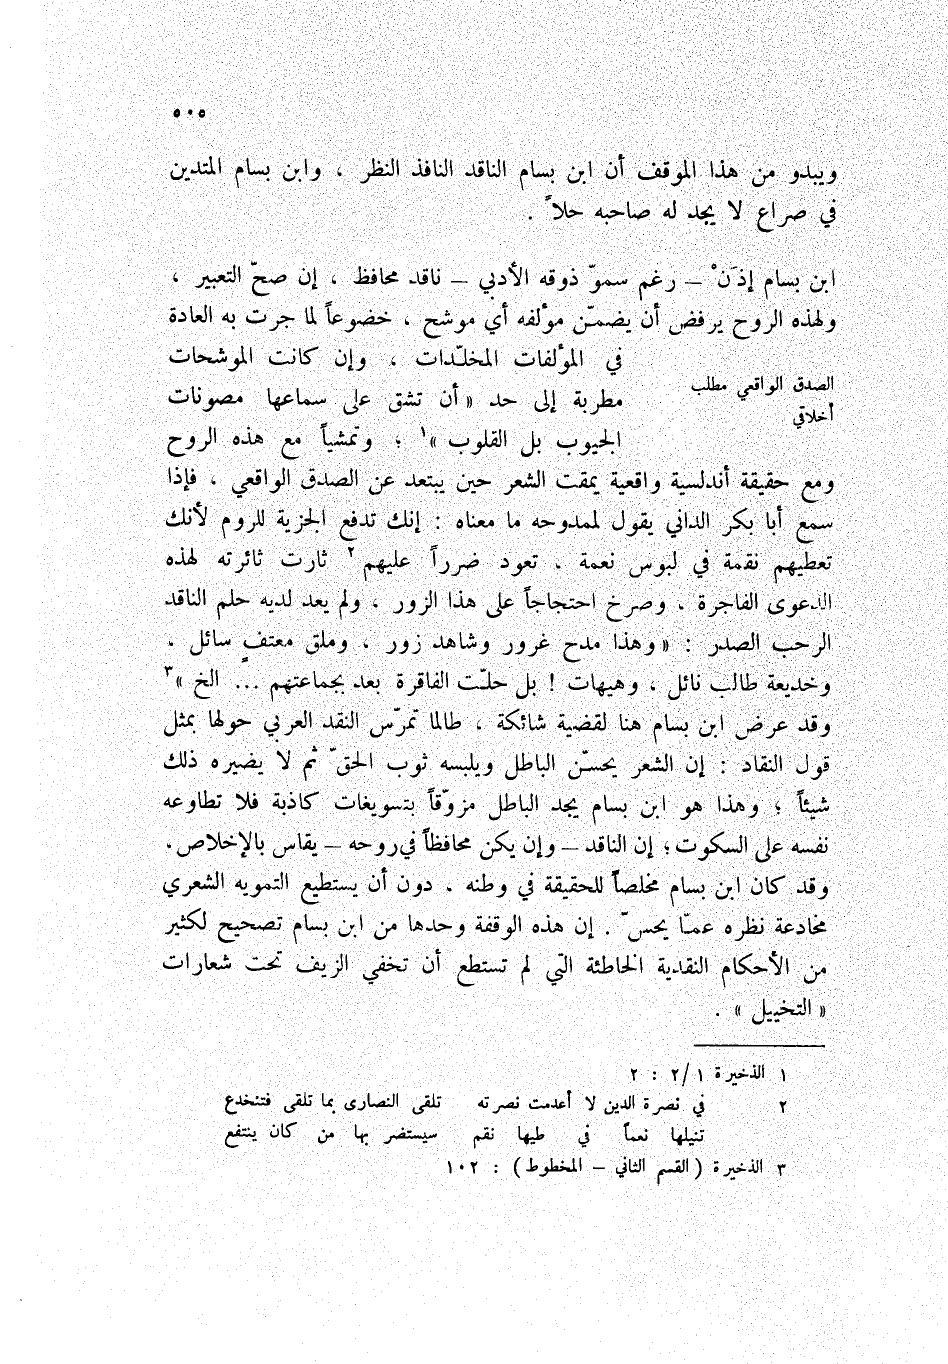 ٥٠٥
ويبدو من هذا الموقف أن ابن بسام الناقد النافذ النظر ، وابن بسام المتدين
في صراع لا يجد له صاحبه حلاً .
ابن بسام إذَنْ – رغم سموّ ذوقه الأدبي – ناقد محافظ ، إن صحّ التعبير ،
ولهذه الروح يرفض أن يضمّن مؤلفه أي موشح ، خضوعاً لما جرت به العادة
في المؤلفات المخلّدات ، وإن كانت الموشحات
الصدق الواقعي مطلب
أخلاقي
مطربة إلى حد « أن تشق على سماعها مصونات
الجيوب بل القلوب »١ ؛ وتمشياً مع هذه الروح
ومع حقيقة أندلسية واقعية يمقت الشعر حين يبتعد عن الصدق الواقعي ، فإذا
سمع أبا بكر الداني يقول لممدوحه ما معناه : إنك تدفع الجزية للروم لأنك
تعطيهم نقمة في لبوس نعمة ، تعود ضرراً عليهم٢ ثارت ثائرته لهذه
الدعوى الفاجرة ، وصرخ احتجاجاً على هذا الزور ، ولم يعد لديه حلم الناقد
الرحب الصدر : « وهذا مدح غرور وشاهد زور ، وملق معتفٍ سائل ،
وخديعة طالب نائل ، وهيهات ! بل حلّت الفاقرة بعد بجماعتهم ... الخ »٣
وقد عرض ابن بسام هنا لقضية شائكة ، طالما تمرّس النقد العربي حولها بمثل
قول النقاد : إن الشعر يحسّن الباطل ويلبسه ثوب الحقّ ثم لا يضيره ذلك
شيئاً ؛ وهذا هو ابن بسام يجد الباطل مزوّقاً بتسويغات كاذبة فلا تطاوعه
نفسه على السكوت ؛ إن الناقد – وإن يكن محافظاً في روحه – يقاس بالإخلاص.
وقد كان ابن بسام مخلصاً للحقيقة في وطنه ، دون أن يستطيع التمويه الشعري
مخادعة نظره عمّا يحسّ . إن هذه الوقفة وحدها من ابن بسام تصحيح لكثير
من الأحكام النقدية الخاطئة التي لم تستطع أن تخفي الزيف تحت شعارات
« التخييل » .
١ الذخيرة ٢/١ : ٢
٢ في نصرة الدين لا أعدمت نصرته تلقى النصارى بما تلقى فتنخدع
تنيلها نعماً في طيها نقم سيستضر بها من كان ينتفع
٣ الذخيرة ( القسم الثاني – المخطوط ) : ١٠٢